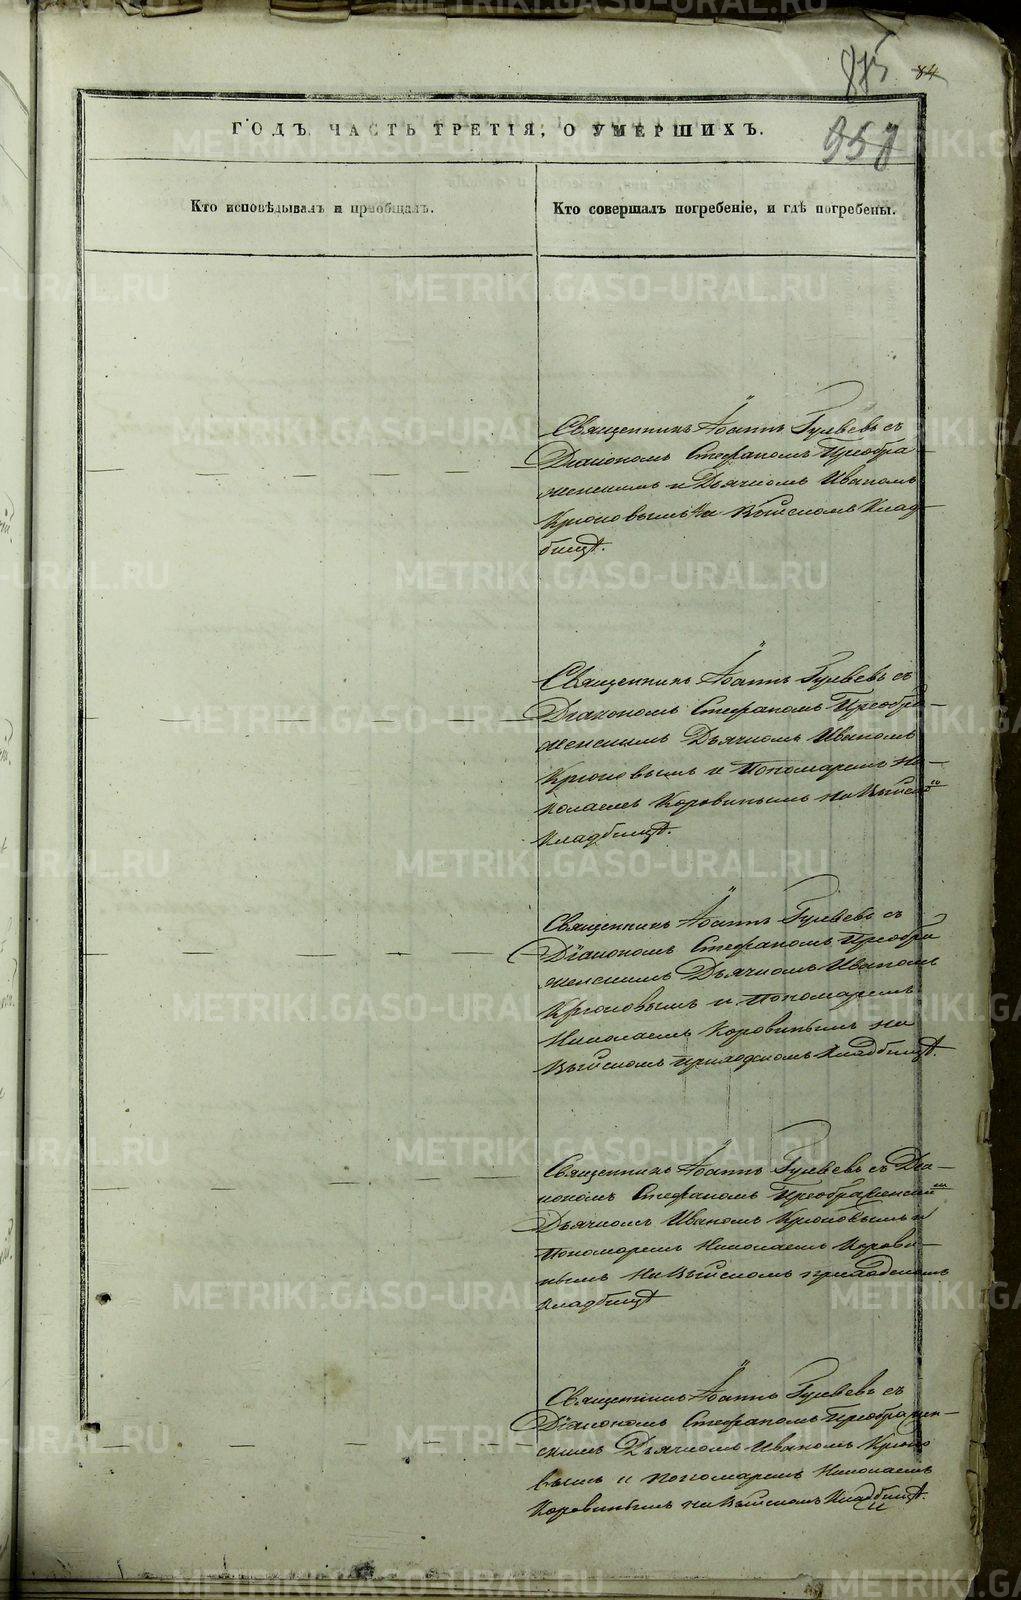 84
ГОДЪ, ЧАСТЬ ТРЕТІЯ, О УМЕРШИХЪ.
Кто исповѣдывалъ и пріобщалъ.
Кто совершалъ погребеніе, и гдѣ погребены.
Священникъ Іоаннъ Гулевъ съ
Діакономъ Стефаномъ Преобра-
женскимъ и Дьячкомъ Иваномъ
Крюковымъ на Выйскомъ Клад-
бищѣ.
Священникъ Іоаннъ Гулевъ съ
Діакономъ Стефаномъ Преобра-
женскимъ Дьячкомъ Иваномъ
Крюковымъ и Пономаремъ Ни-
колаемъ Коровинымъ на Выйскомъ
Кладбищѣ.
Священникъ Іоаннъ Гулевъ съ
Діакономъ Стефаномъ Преобра
женскимъ Дьячкомъ Иваномъ
Крюковымъ и Пономаремъ
Николаемъ Коровинымъ на
Выйскомъ приходскомъ Кладбищѣ.
Священникъ Іоаннъ Гулевъ съ Діа-
кономъ Стефаномъ Преображенскимъ
Дьячкомъ Иваномъ Крюковымъ и
Пономаремъ Николаемъ Корови-
нымъ на Выйскомъ приходскомъ
Кладбищѣ
Священникъ Іоаннъ Гулевъ съ
Діакономъ Стефаномъ Преображен-
скимъ Дьячкомъ Иваномъ Крюко
вымъ и Пономаремъ Николаемъ
Коровинымъ на Выйскомъ Кладбищѣ.
METRIKI.GASO-URAL.RU